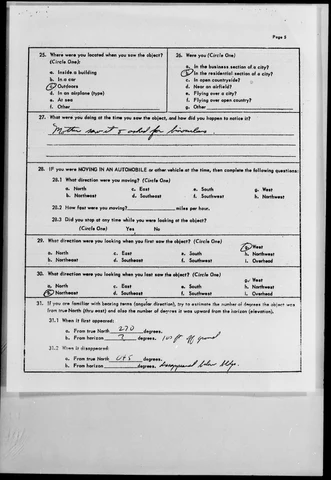 Page 2
25. Where were you located when you saw the object?
(Circle One):
a. Inside a building
b. In a car
c. Outdoors
d. In an airplane (type)
e. At sea
f. Other
26. Were you (Circle One)
a. In the business section of a city?
b. In the residential section of a city?
c. In open countryside?
d. Near an airfield?
e. Flying over a city?
f. Flying over open country?
g. Other
27. What were you doing at the time you saw the object, and how did you happen to notice it?
Mother saw it & asked for binoculars.
28. IF you were MOVING IN AN AUTOMOBILE or other vehicle at the time, then complete the following questions:
28.1 What direction were you moving? (Circle One)
a. North c. East e. South g. West
b. Northeast d. Southeast f. Southwest h. Northwest
28.2 How fast were you moving? miles per hour.
28.3 Did you stop at any time while you were looking at the object?
(Circle One) Yes No
29. What direction were you looking when you first saw the object? (Circle One)
a. North c. East e. South g. West
b. Northeast d. Southeast f. Southwest h. Northwest
i. Overhead
30. What direction were you looking when you last saw the object? (Circle One)
g. West
a. North c. East e. South h. Northwest
b. Northeast d. Southeast f. Southwest i. Overhead
31. If you are familiar with bearing terms (angular direction), try to estimate the number of degrees the object was
from true North (thru east) and also the number of degrees it was upward from the horizon (elevation).
31.1 When it first appeared:
a. From true North 270 degrees.
b. From horizon ? degrees. off ground
31.2 When it disappeared:
a. From true North 045 degrees.
b. From horizon degrees. disappeared below bldgs.